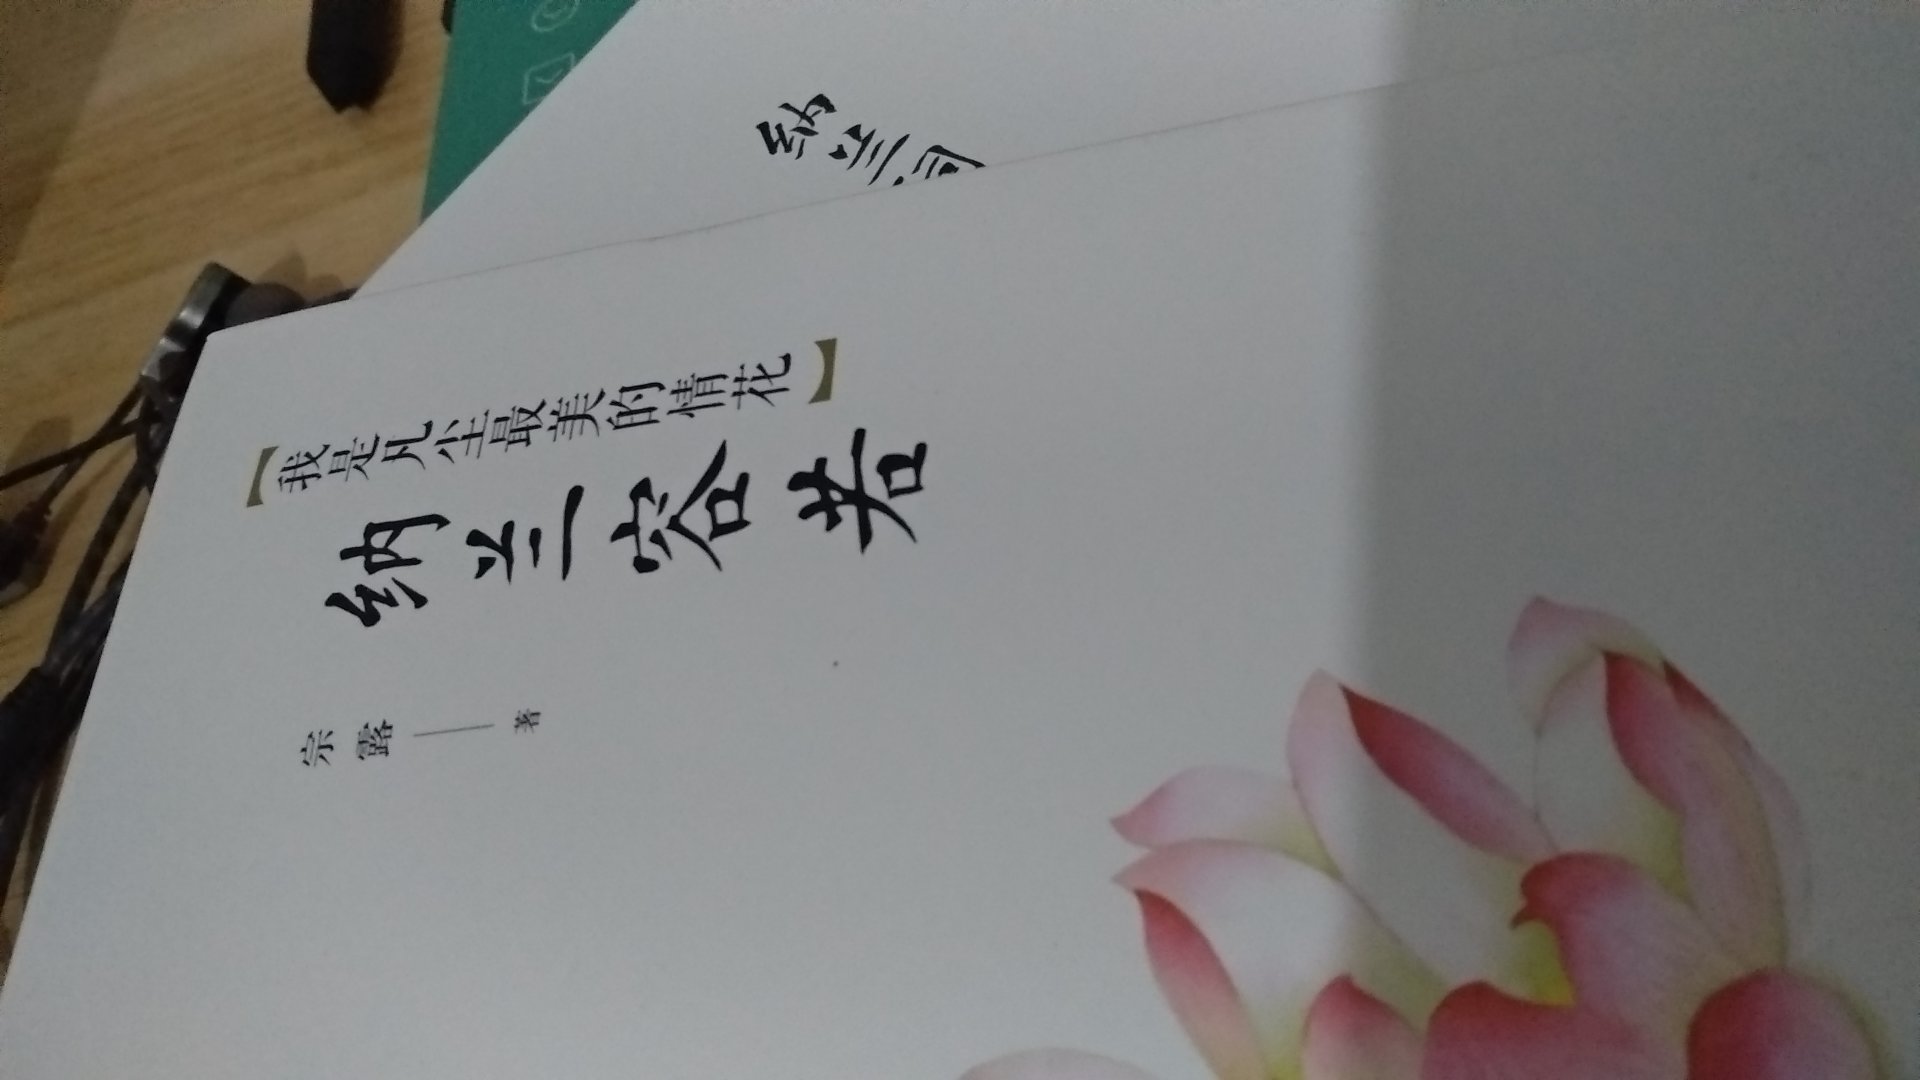 纳兰词
【我是凡尘最美的情花】
纳兰容若
宗露——著